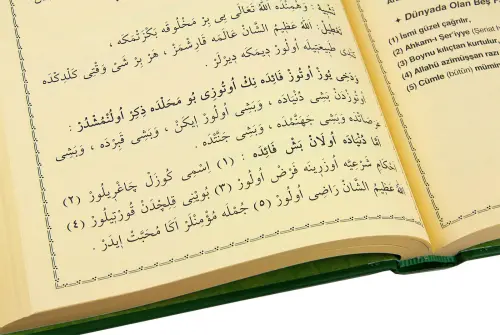 تَنْبِيهْ : وَهَمْنَدَه اللّٰهُ تَعَالٰى يِى بِرْ مَخْلُوقَه بَكْزَتْمَكَه ،
تَعْطِيلْ : اللّٰهُ عَظِيمُ الشَّانْ عَالَمَه قَارِشْمَزْ ، هَرْ بِرْ شَىْ وَقْتِى كَلْدِكْدَه
كَنْدِى طَبِيعَتِيلَه اُولُورْ دِيمَكَه دِيرْلَرْ .
وَدَخِى يُوزْ اُوتُوزْ فَائِدَه نِكْ اُوتُوزِى بُو مَحَلْدَه ذِكِرْ اُولُنْمُشْدُرْ :
اُوتُوزْدَنْ بَشِى دُنْيَادَه ، وَبَشِى اُولُورْ اِيكَنْ ، وَبَشِى قَبِرْدَه ، وَبَشِى
عَرَصَاتْدَه وَبَشِى جَهَنَّمْدَه ، وَبَشِى جَنَّتْدَه .
اَمَّا دُنْيَادَه اُولَانْ بَشْ فَائِدَه : (١) اِسْمِى كُوزَلْ چَاغْرِيلُورْ (٢)
اَحْكَامِ شَرْعِيَّه اُوزَرِينَه فَرْضْ اُولُورْ (٣) بُويْنِى قِلِچْدَنْ قُورْتِيلُورْ (٤)
اللّٰهُ عَظِيمُ الشَّانْ رَاضِى اُولُورْ (٥) جُمْلَه مُؤْمِنْلَرْ اَكَا مُحَبَّتْ اِيدَرْ .
Allahü
✦ Dünyada Olan Beş F
(1) İsmi güzel çağrılır,
(2) Ahkam-ı Şer'iyye (Şerat
(3) Boynu kılıçtan kurtulur,
(4) Allahü azimüşşan raz
(5) Cümle (bütün) mümin